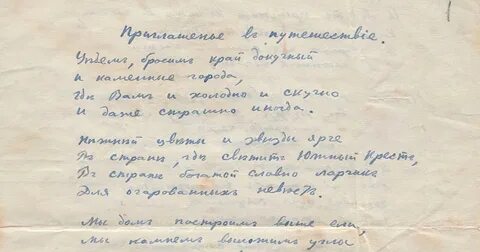 1
Приглашенье въ путешествіе.
Уѣдемъ, бросимъ край докучный
и каменные города,
Гдѣ Вамъ и холодно и скучно
и даже страшно иногда.
Нѣжнѣй цвѣты и звѣзды ярче
Въ странѣ, гдѣ свѣтитъ Южный Крестъ,
Въ странѣ богатой, словно ларчикъ
Для очарованныхъ невѣстъ.
Мы домъ построимъ выше ели,
мы камнемъ выложимъ углы